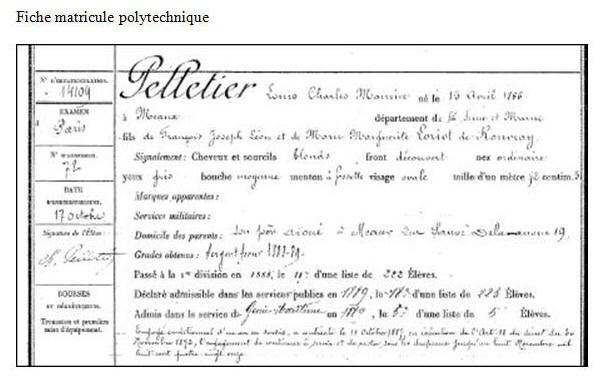 Fiche matricule polytechnique
N° D'IMMATRICULATION.
14109
EXAMEN
Paris
N° D'ADMISSION.
72
DATE
17 octobre
Signature de l'Élève:
Pelletier
BOURSES
Trousseau et première
mise d'équipement.
Pelletier Louis Charles Maurice né le 15 Avril 1866
à Meaux département de Seine et Marne
fils de François Joseph Léon et de Marie Marguerite Loriot de Rouvray
Signalement: Cheveux et sourcils blonds front découvert nez ordinaire
yeux gris bouche moyenne menton à fossette visage ovale taille d'un mètre 72 centim.
Marques apparentes:
Services militaires:
Domicile des parents: son père avoué à Meaux 19.
Grades obtenus: Sergent fourr 1888-89.
Passé à la 1re division en 1888, le d'une liste de 222 Élèves.
Déclaré admissible dans les services publics en 1889, le d'une liste de 223 Élèves.
Admis dans le service de Génie Maritime en 1889, le 5e d'une liste de 5 Élèves.
en exécution de l'Art. 18 du décret du
Novembre 1872, l'engagement de continuer à servir
huit cent quatre vingt onze.